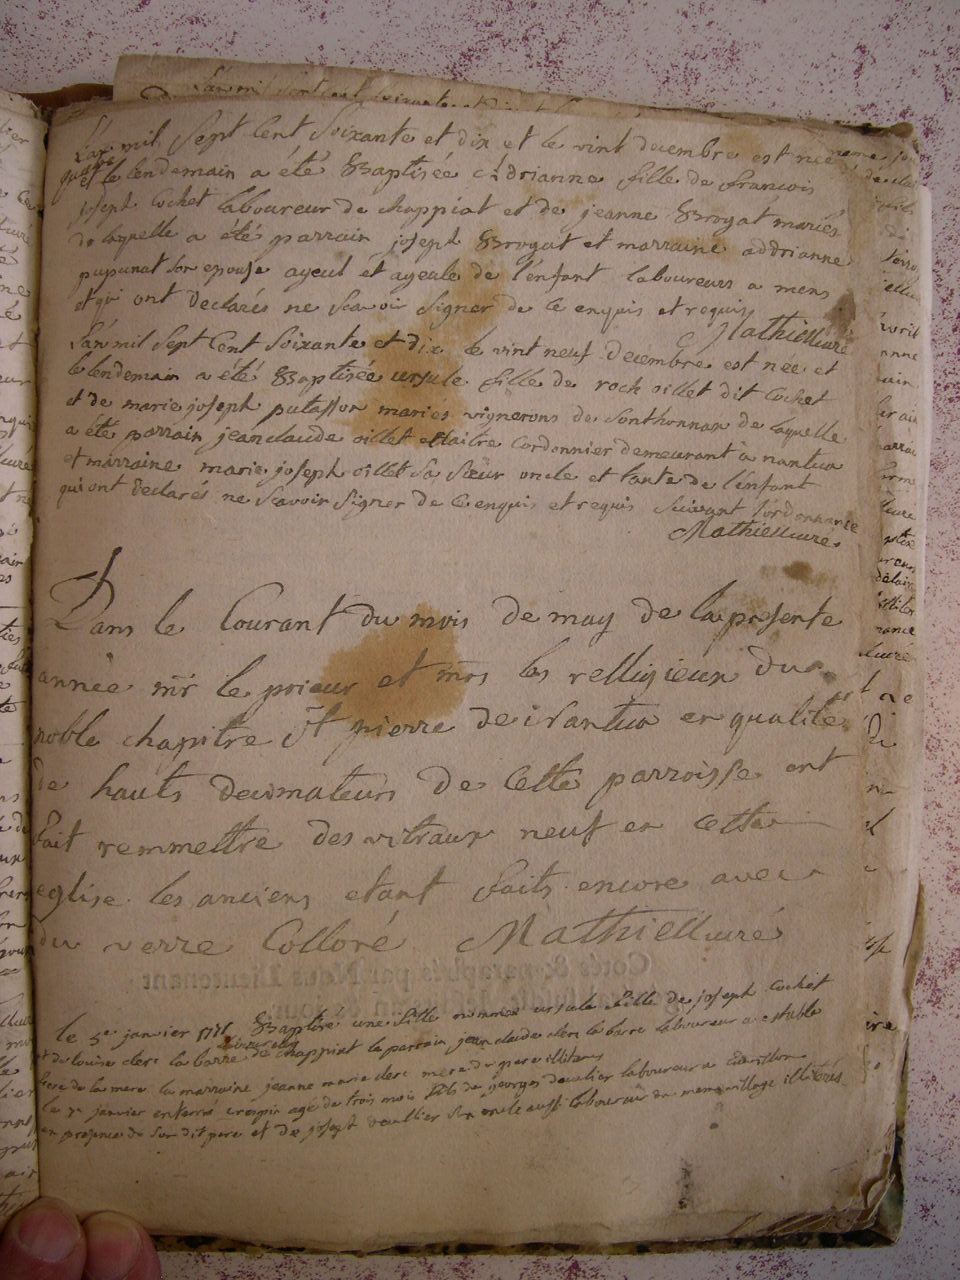 L'an mil sept cent soixante et dix et le vint quatre decembre est nee
et le lendemain a été Baptisée Adrianne fille de francois
joseph Cochet laboureur de chappiat et de jeanne Brogat mariés
de laquelle a étés parrain joseph Brogat et marraine addrianne
pupunat son epouse ayeul et ayeule de l'enfant laboureurs a mens
et qui ont Declarés ne scavoir signer de ce enquis et requis
Mathieu curé
L'an mil sept Cent Soixante et dix le vint neuf decembre est nee et
le lendemain a été Baptisée ursule fille de roch oillet dit Cochet
et de marie joseph putasson mariés vignerons de Sonthonnax de laquelle
a été parrain jean claude oillet Maitre Cordonnier demeurant a nantua
et marraine marie joseph oillet sa sœur oncle et tante de l'enfant
qui ont declarés ne scavoir signer de ce enquis et requis suivant l'ordonnance
Mathieu curé
Dans le Courant du mois de may de la presente
année mr le prieur et mrs les relligieux du
noble chapitre st pierre de nantua en qualité
de hauts decimateurs de Cette parroisse ont
fait remmettre des vitraux neuf en cette
eglise les anciens etant faits encore avec
du verre Colloré Mathieu curé
le 5e janvier 1771 Baptisé une fille nommée ursule fille de joseph Cochet
et de louise clerc la barre laboureur de chappiat le parrain jean claude clerc la barre laboureur a
frere de la mere la marraine jeanne marie clerc mere du pere illiteres
le 7e janvier enterré crepin agé de trois mois fils de georges laboureur a
en presence de son dit pere et de joseph son oncle aussi laboureur du meme village illiterés